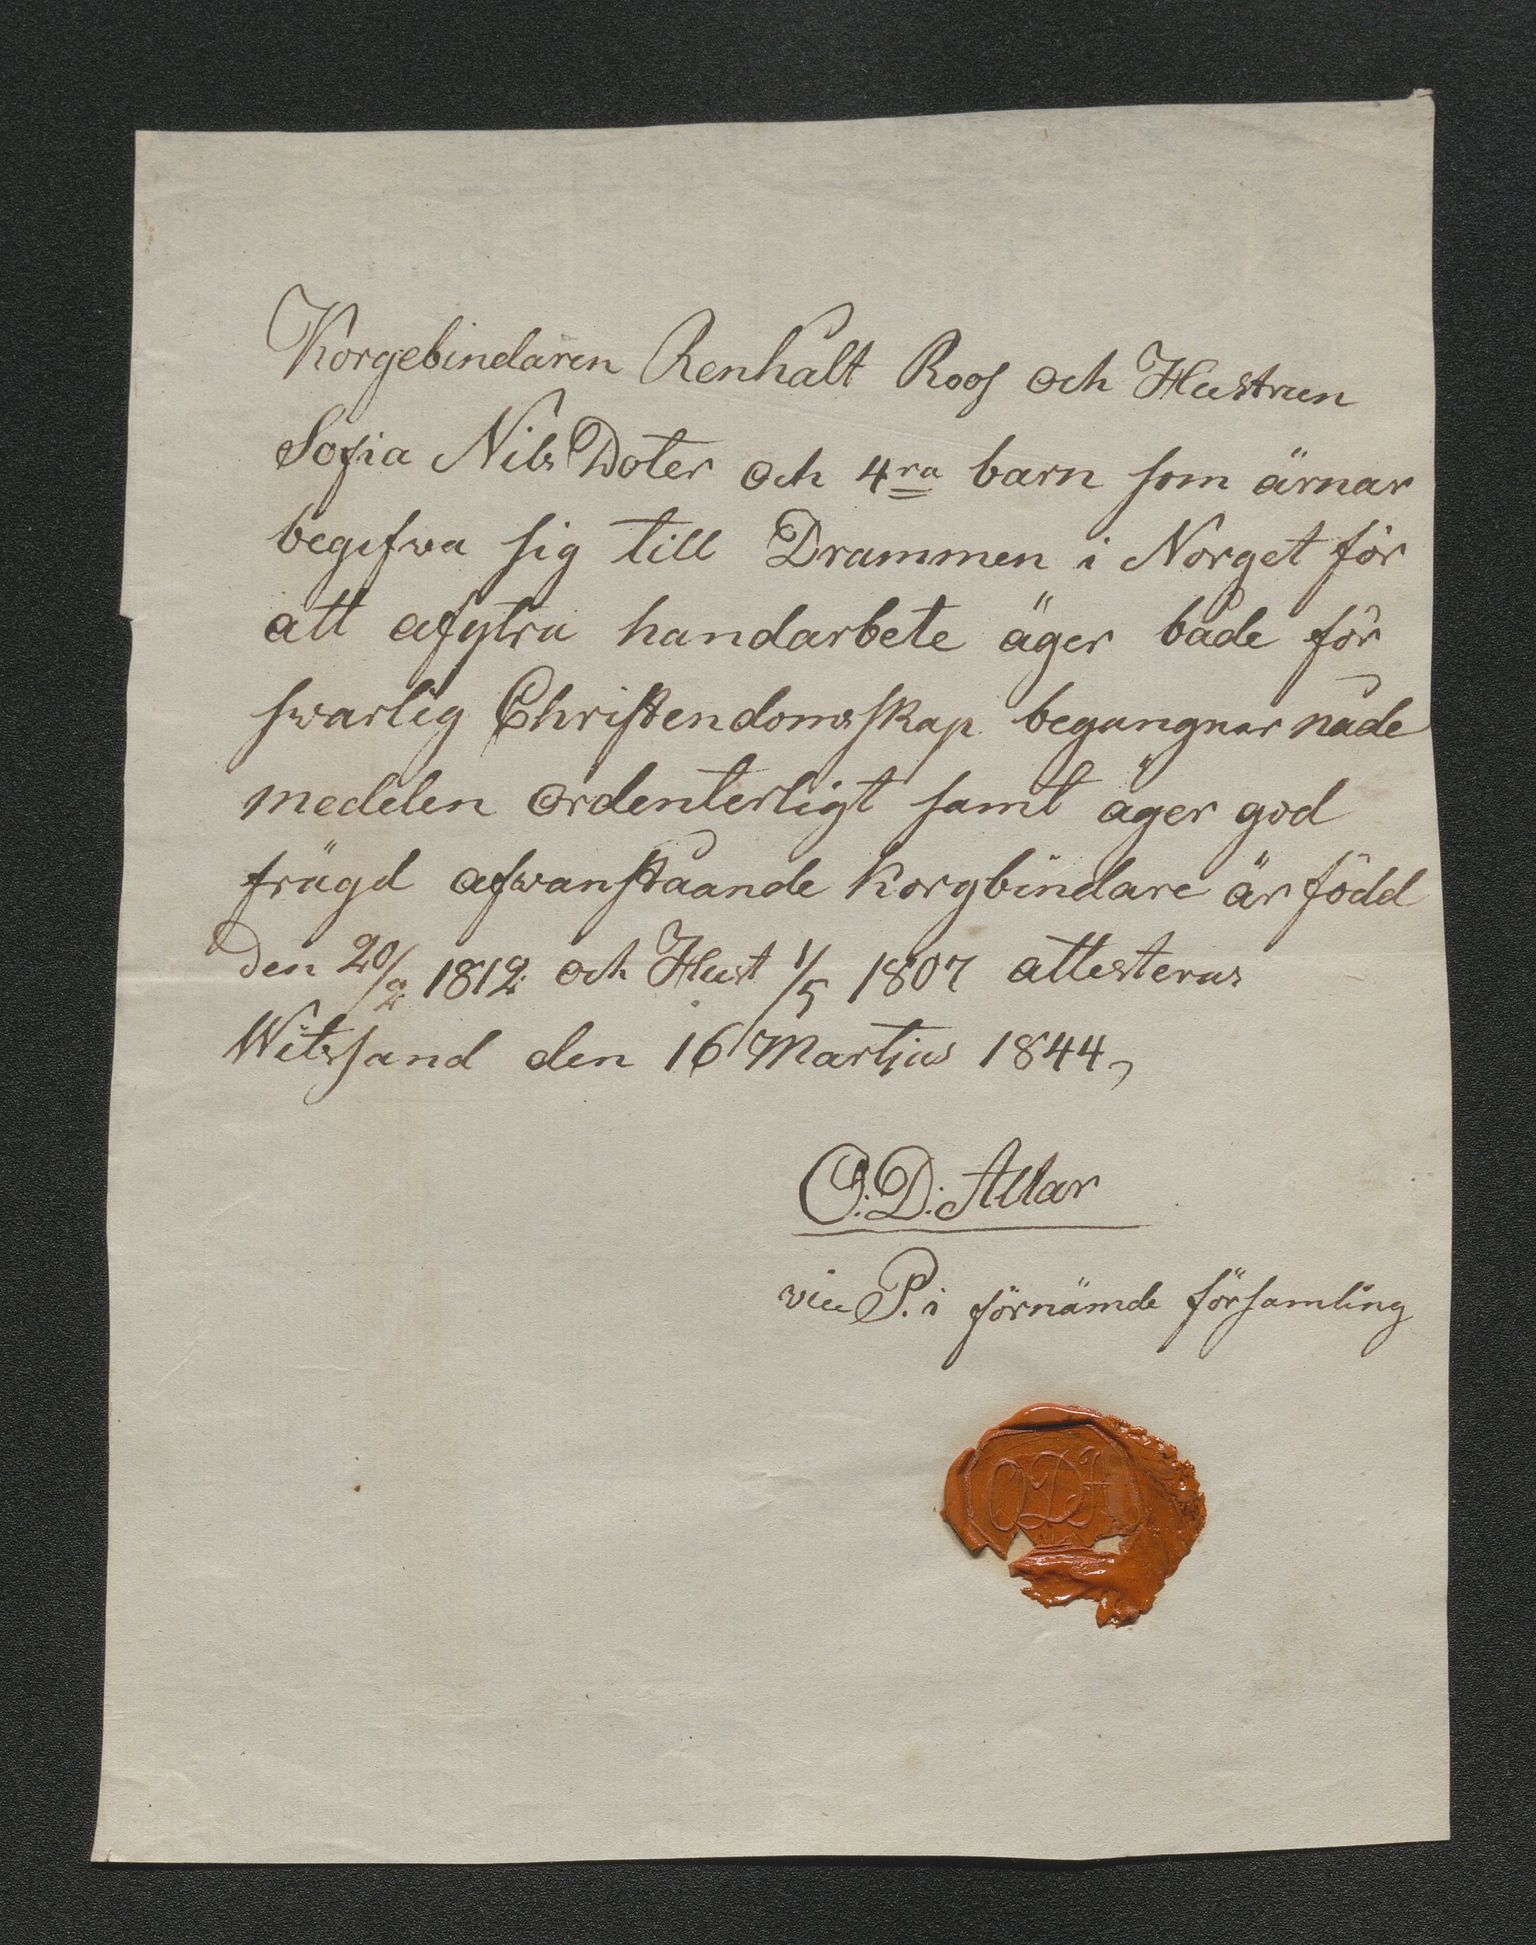 Korgebindaren Renhalt Roos och Hustrun
Sofia Nils Doter och 4ra barn som ärnar
begifwa sig till Drammen i Norget för
att afytra handarbete äger både för
swarlig Christendomsskap begangnar nåde
medelen ordenterligt samt äger god
frägd afwanståande Korgbindare är född
den 20/2 1812 och Hust 1/5 1807 attesteras
Witssand den 16 Martjus 1844,
O: D: Allar
vice P. i förnämde församling
ODA